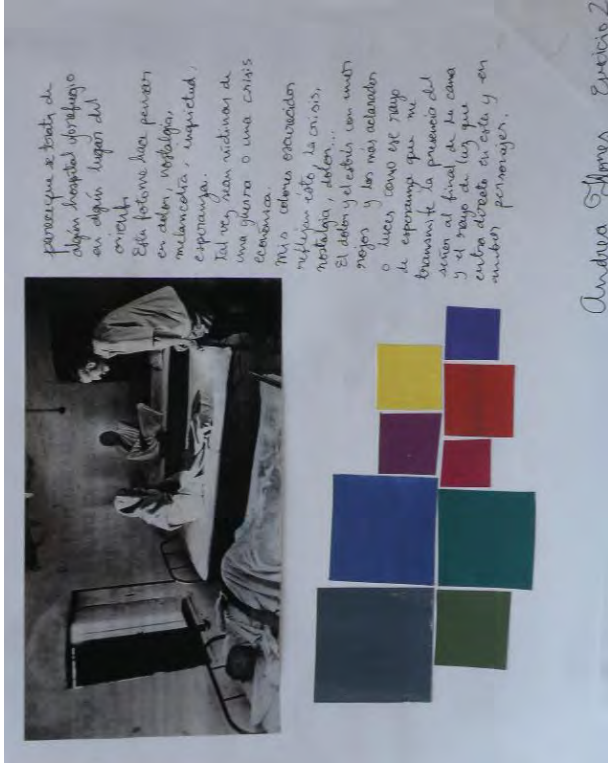 parece que se trata de
algún hospital o refugio
en algún lugar del
oriente
Esta foto me hace pensar
en dolor, nostalgia,
melancolía, inquietud,
esperanza.
Tal vez sean víctimas de
una guerra o una crisis
económica.
Mis colores oscurecidos
reflejan esto la crisis,
nostalgia, dolor...
El dolor y el estrés con unos
rojos y los más aclarados
o luces como ese rayo
de esperanza que me
transmite la presencia del
señor al final de la cama
y el rayo de luz que
entra directo en esta y en
ambos personajes.
Andrea Ejercicio 2